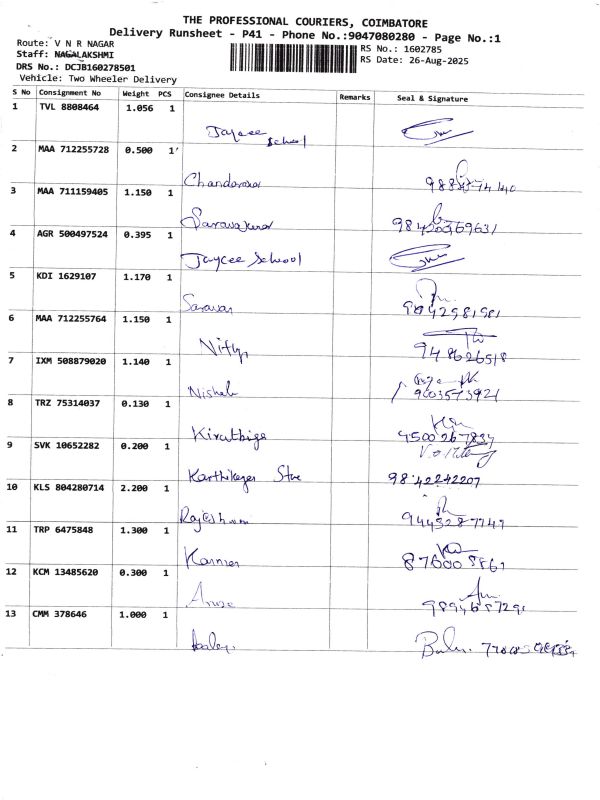 THE PROFESSIONAL COURIERS, COIMBATORE
Delivery Runsheet - P41 - Phone No.:9047080280 - Page No.:1
Route: V N R NAGAR
Staff: NAGALAKSHMI
DRS No.: DCJB160278501
Vehicle: Two Wheeler Delivery
RS No.: 1602785
RS Date: 26-Aug-2025
S No Consignment No Weight PCS Consignee Details Remarks Seal & Signature
1 TVL 8808464 1.056 1
Jaycee School
2 MAA 712255728 0.500 1
3 MAA 711159405 1.150 1
4 AGR 500497524 0.395 1
Jaycee School
5 KDI 1629107 1.170 1
Saravan 9842981981
6 MAA 712255764 1.150 1
948626518
7 IXM 508879020 1.140 1
9003573921
8 TRZ 75314037 0.130 1
Kiruthiga
9 SVK 10652282 0.200 1
9842242207
10 KLS 804280714 2.200 1
11 TRP 6475848 1.300 1
12 KCM 13485620 0.300 1
9894687291
13 CMM 378646 1.000 1